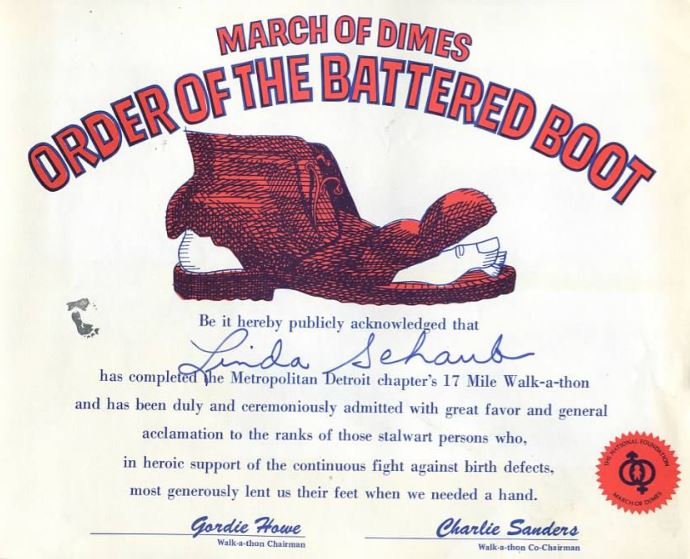 MARCH OF DIMES
ORDER OF THE BATTERED BOOT
Be it hereby publicly acknowledged that
Linda Schaub
has completed the Metropolitan Detroit chapter's 17 Mile Walk-a-thon
and has been duly and ceremoniously admitted with great favor and general
acclamation to the ranks of those stalwart persons who,
in heroic support of the continuous fight against birth defects,
most generously lent us their feet when we needed a hand.
THE NATIONAL FOUNDATION
MARCH OF DIMES
Gordie Howe
Walk-a-thon Chairman
Charlie Sanders
Walk-a-thon Co-Chairman